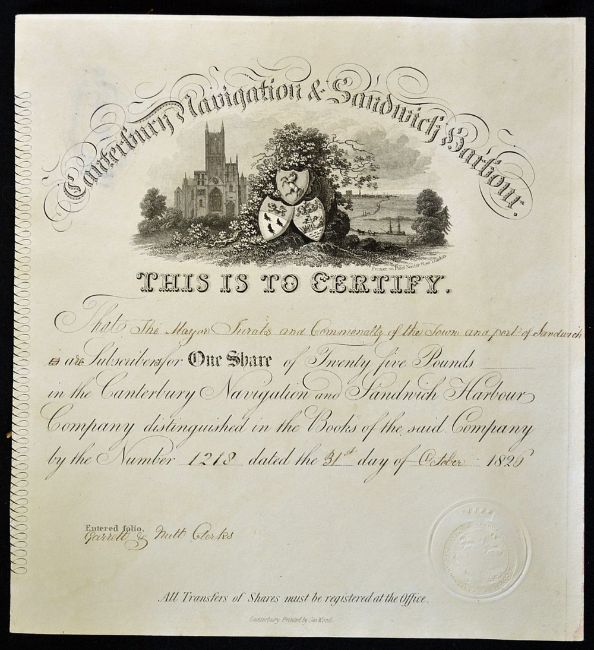 Canterbury Navigation & Sandwich Harbour.
THIS IS TO CERTIFY.
That The Mayor Jurats and Commonalty of the Town and port of Sandwich
are Subscribers for One Share of Twenty five Pounds
in the Canterbury Navigation and Sandwich Harbour
Company distinguished in the Books of the said Company
by the Number 1218 dated the 31st day of October 1826
Entered folio.
Garrett & Nutt Clerks
All Transfers of Shares must be registered at the Office.
Canterbury Printed by Geo Wood.